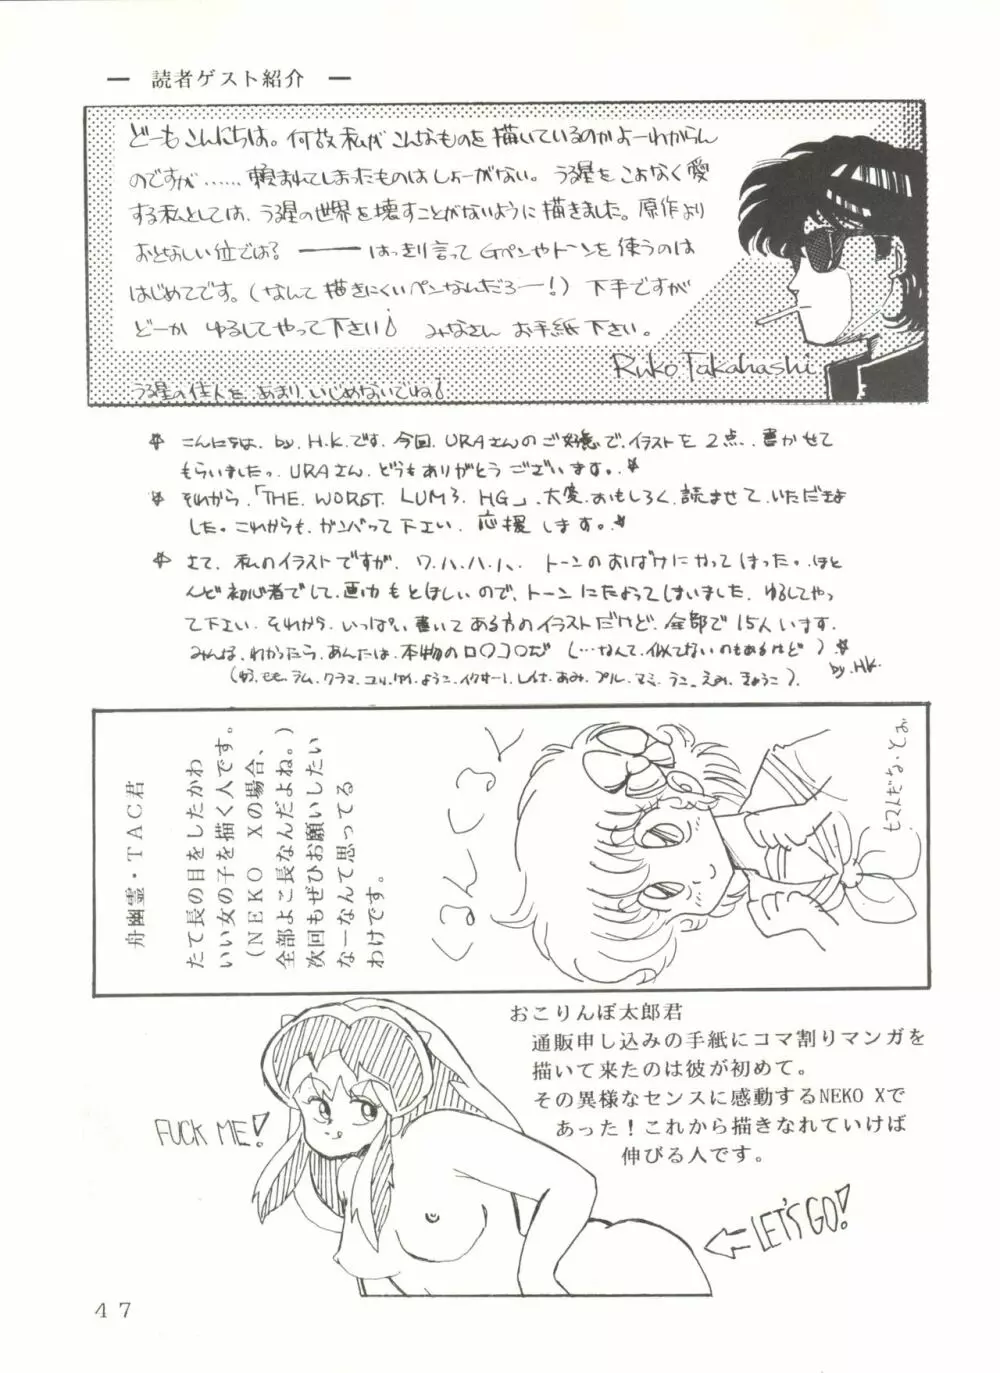 ― 読者ゲスト紹介 ―
どーもこんにちは。何故私がこんなものを描いているのかよーわからん
のですが……頼まれてしまったものはしょーがない。うる星をこよなく愛
する私としては、うる星の世界を壊すことがないように描きました。原作より
おとなしい位では? ――― はっきり言ってGペンやトーンを使うのは
はじめてです。(なんて描きにくいペンなんだろー!) 下手ですが
どーか ゆるしてやって下さい♪ みなさん お手紙下さい。
Ruko Takahashi
うる星の住人を あまり いじめないでね!
☆ こんにちは、by, H.K.です。今回、URAさんのご好意で、イラストを2点、書かせて
もらいました。URAさん、どうもありがとうございます。☆
☆ それから、「THE WORST LUM3 HG」、大変、おもしろく、読ませて、いただきま
した。これからも、ガンバって下さい、応援します。☆
☆ さて、私のイラストですが、ワ,ハ,ハ,ハ、トーンのおばけにやってしまった。ほと
んど初心者でして、画力もとぼしいので、トーンにたよってしまいました、ゆるしてやっ
て下さい。それから、いっぱい、書いてある方のイラストだけど、全部で15人います。
みんな、わかったら、あんたは、本物のロ〇コ〇だ (…なんて、似てないのもあるけど)☆
by.H.K.
(ゆう、モモ、ラム、クラマ、ユリ、ゆい、ようこ、イクサー1、レイナ、あみ、プル、マミ、うこ、えみ、きょうこ)
舟幽霊・TAC君
たて長の目をしたかわ
いい女の子を描く人です。
(NEKO Xの場合、
全部よこ長なんだよね。)
次回もぜひお願いしたい
なーなんて思ってる
わけです。
くるんくるっ
おこりんぼ太郎君
通販申し込みの手紙にコマ割りマンガを
描いて来たのは彼が初めて。
その異様なセンスに感動するNEKO Xで
あった!これから描きなれていけば
伸びる人です。
FUCK ME!
LET'S GO!
47